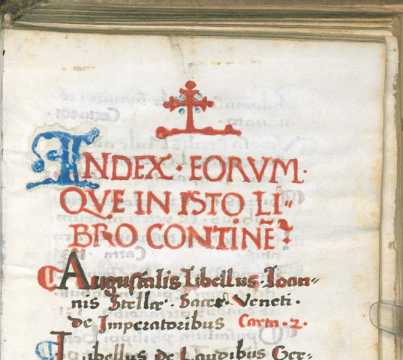 INDEX · EORVM ·
QVE IN ISTO LI⹀
BRO CONTINĒ?
Augustalis Libellus Ioan⹀
nis Stellæ · Sacer Veneti ·
de Imperatoribus Carta · 2 ·
Libellus de Laudibus Ger⹀